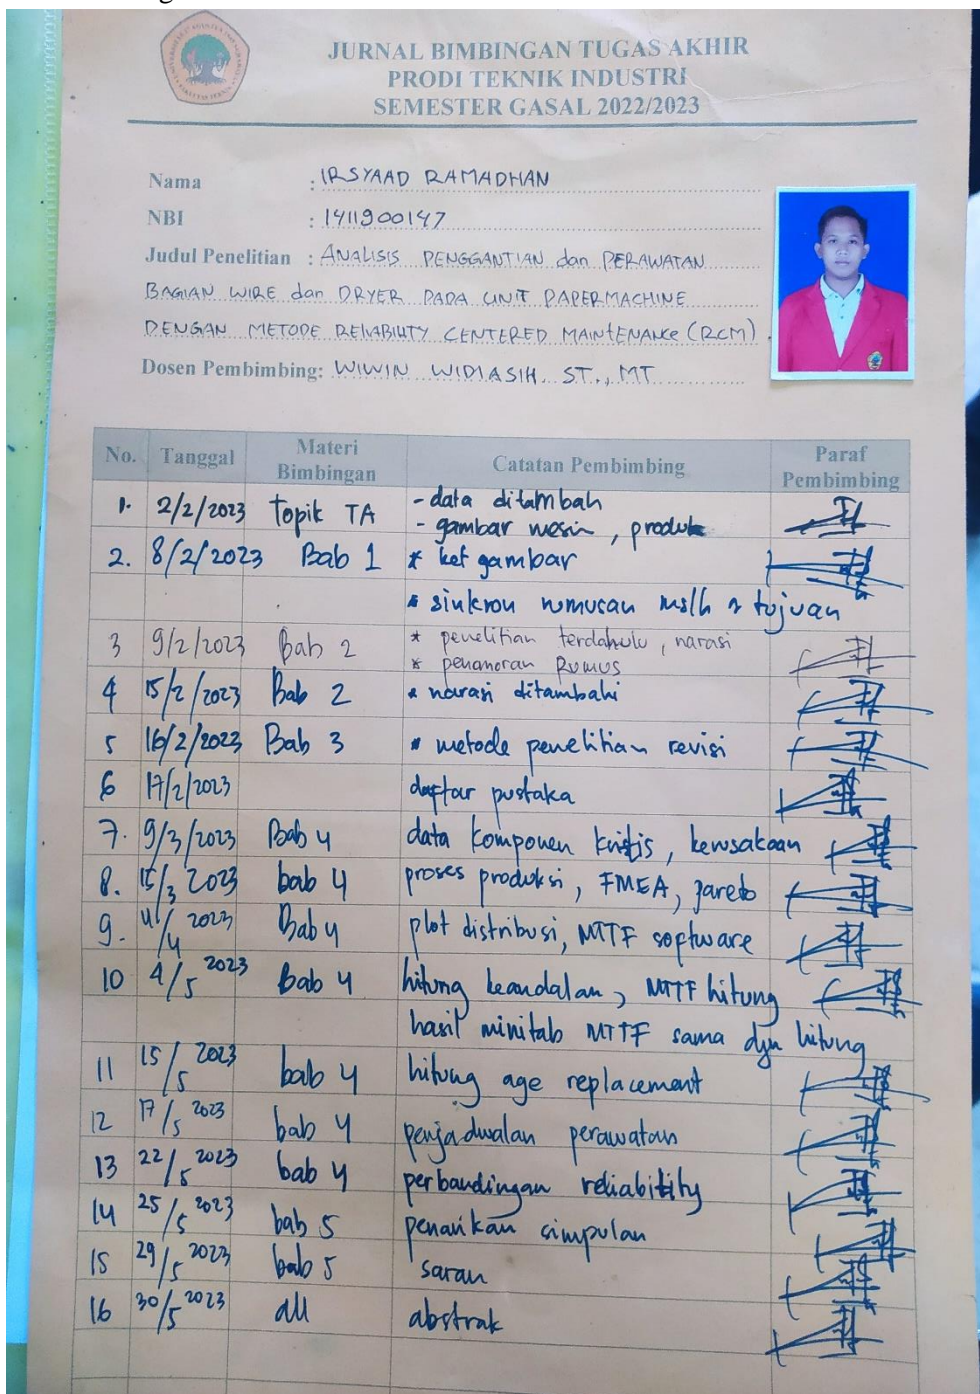 JURNAL BIMBINGAN TUGAS AKHIR
PRODI TEKNIK INDUSTRI
SEMESTER GASAL 2022/2023
Nama : IRSYAAD RAMADHAN
NBI : 1411900147
Judul Penelitian : ANALISIS PENGGANTIAN dan PERAWATAN
BAGIAN WIRE dan DRYER PADA UNIT PAPERMACHINE
DENGAN METODE RELIABILITY CENTERED MAINTENANCE (RCM).
Dosen Pembimbing: WIWIN WIDIASIH, ST., MT
No. Tanggal Materi Bimbingan Catatan Pembimbing Paraf Pembimbing
1. 2/2/2023 topik TA - data ditambah
- gambar mesin, produk
2. 8/2/2023 Bab 1 * ket gambar
* sinkron rumusan mslh & tujuan
3 9/2/2023 Bab 2 * penelitian terdahulu, narasi
* penomoran Rumus
4 15/2/2023 Bab 2 * narasi ditambahi
5 16/2/2023 Bab 3 * metode penelitian revisi
6 17/2/2023 daftar pustaka
7. 9/3/2023 Bab 4 data komponen kritis, kerusakaan
8. 15/3 2023 bab 4 proses produksi, FMEA, pareto
9. 4/4 2023 Bab 4 plot distribusi, MTTF software
10 4/5 2023 Bab 4 hitung keandalan, MTTF hitung
hasil minitab MTTF sama dgn hitung
11 15/5 2023 bab 4 hitung age replacement
12 17/5 2023 bab 4 penjadwalan perawatan
13 22/5 2023 bab 4 perbandingan reliability
14 25/5 2023 bab 5 penarikan simpulan
15 29/5 2023 bab 5 saran
16 30/5 2023 all abstrak